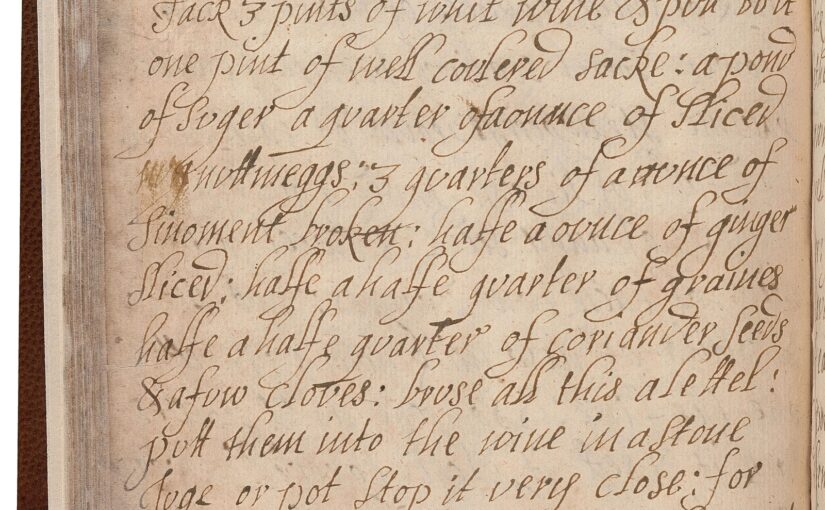 Jack 3 pints of whit wine & put butt
one pint of well coulered sacke: a pond
of Suger a quarter of a ounce of Sliced
nuttmeggs: 3 quarters of an ounce of
Sinoment broken: halfe a ounce of ginger
Sliced: halfe a halfe quarter of graines
halfe a halfe quarter of coriander Seeds
& a fuw cloves: bruse all this a lettel:
putt them into the wine in a stone
Juge or pot stop it very close: for